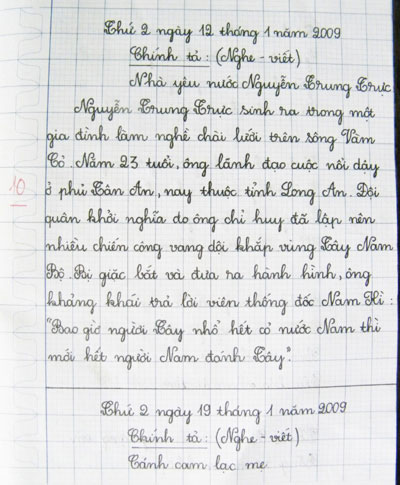 Thứ 2 ngày 12 tháng 1 năm 2009
Chính tả: (Nghe - viết)
Nhà yêu nước Nguyễn Trung Trực
Nguyễn Trung Trực sinh ra trong một
gia đình làm nghề chài lưới trên sông Vàm
Cỏ. Năm 23 tuổi, ông lãnh đạo cuộc nổi dậy
ở phủ Tân An, nay thuộc tỉnh Long An. Đội
quân khởi nghĩa do ông chỉ huy đã lập nên
nhiều chiến công vang dội khắp vùng Tây Nam
Bộ. Bị giặc bắt và đưa ra hành hình, ông
khảng khái trả lời viên thống đốc Nam Kì :
"Bao giờ người Tây nhổ hết cỏ nước Nam thì
mới hết người Nam đánh Tây".
10
Thứ 2 ngày 19 tháng 1 năm 2009
Chính tả: (Nghe - viết)
Cánh cam lạc mẹ